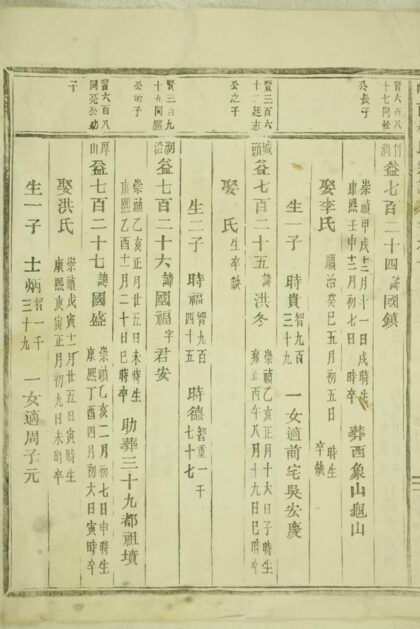 賢六百八
十七同松
公長子
竹湖
益七百二十四 諱國鎮
崇禎甲戌十二月十一日戌時生
康熙壬申十二月初七日 時卒
葬西象山龜山
娶李氏
順治癸巳五月初五日 時生
卒缺
生一子 時貴 智九百
三十九
一女適前宅吳宏慶
賢三百六
十二廷志
公之子
城頭
益七百二十五 諱洪冬
崇禎乙亥正月十六日子時生
雍正丙午八月十九日巳時卒
娶 氏 生卒缺
生二子 時福 智九百
四十五
時德 智重一千
七十七
賢三百九
十九同熙
公前子
湖
益七百二十六 諱國福 字君安
崇禎乙亥正月廿五日未時生
康熙乙酉十二月二十日巳時卒
助葬三十九都祖墳
賢六百八
同亮公幼
子
厚山
益七百二十七 諱國盛
崇禎乙亥二月初七日申時生
康熙丁酉四月初六日寅時卒
娶洪氏
崇禎戊寅十一月廿五日寅時生
康熙庚寅正月初九日未時卒
生一子 士炳 智一千
三十九
一女適周子元